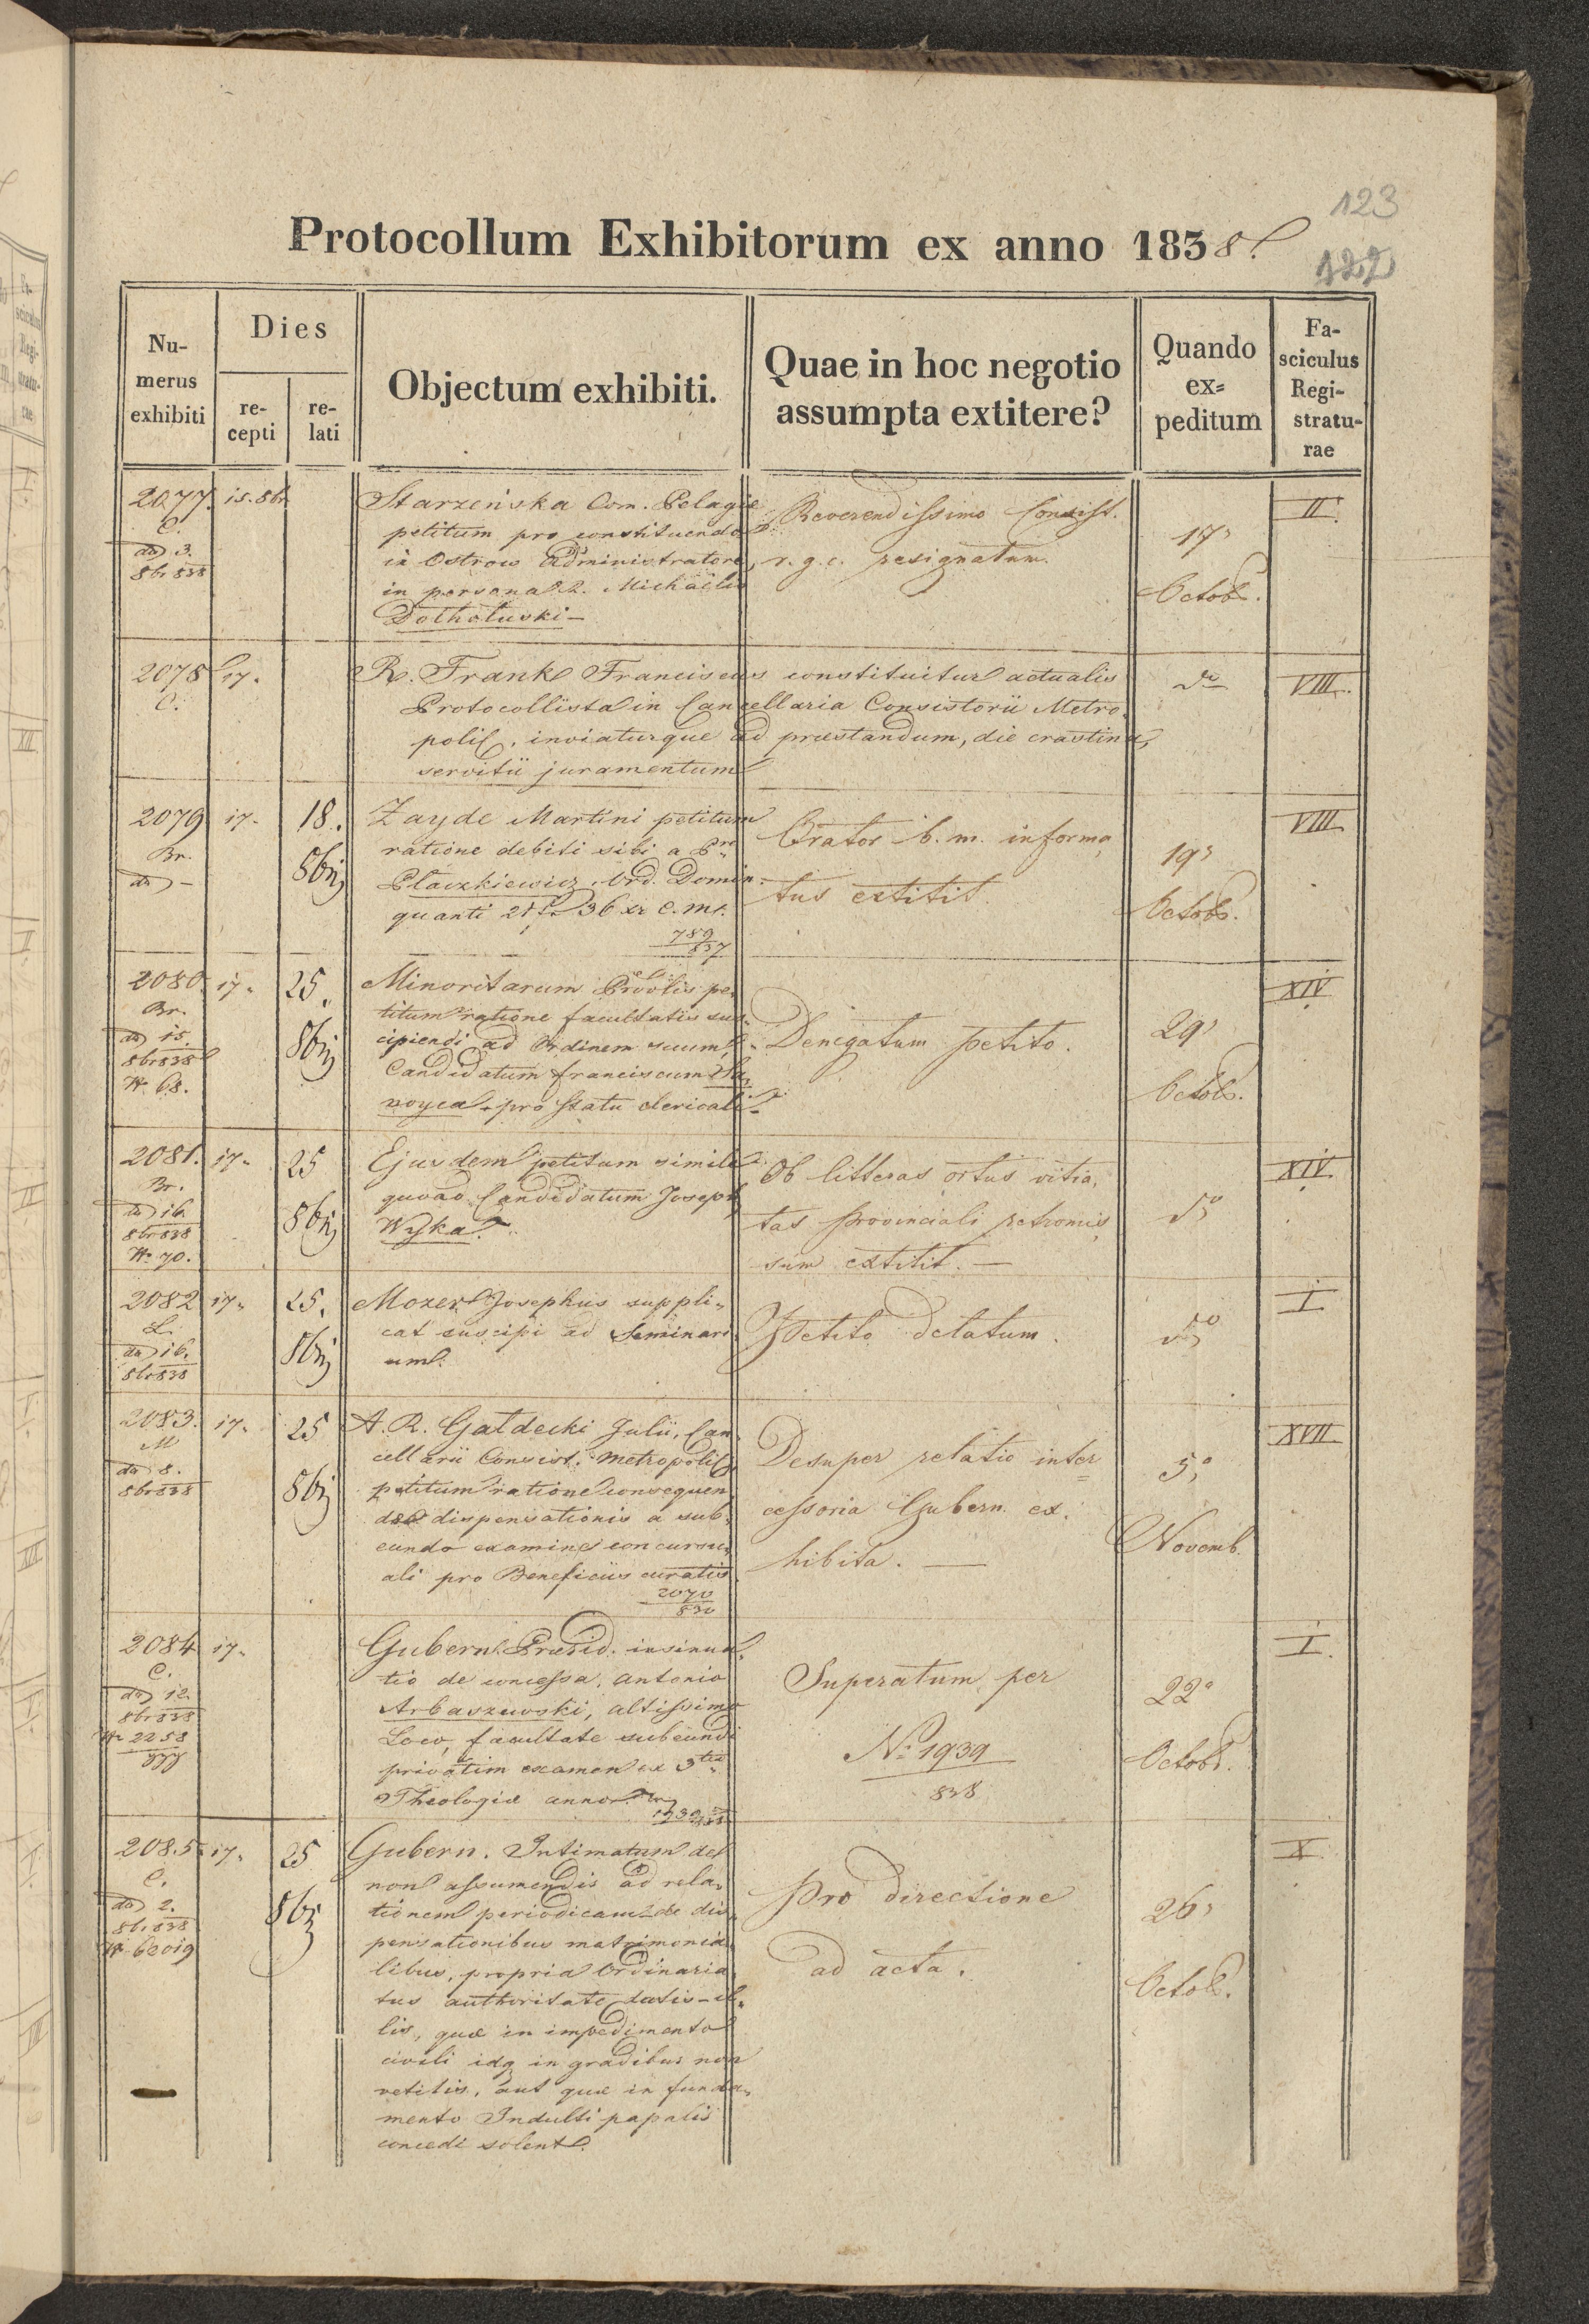 123
Protocollum Exhibitorum ex anno 1838.
Numerus exhibiti
Dies
recepti
relati
Objectum exhibiti.
Quae in hoc negotio assumpta extitere?
Quando expeditum
Fasciculus Registraturae
2077. 15. 8br
C.
dd 3.
8br 838
Starzeńska Com. Pelagie
petitum pro constituendo
in Ostrow Administratore,
in persona R. Michaelis
Dothotuski -
Reverendissimo Consist.
r. g. c. resignatum.
17
Octob.
II
2078 17.
C.
R. Frank Franciscus constituitur actualis
Protocollista in Cancellaria Consistorii Metro-
polit, inviaturque ad præstandum, die crastina,
servitii juramentum
do
VIII.
2079 17. 18.
Br. 8bris
dd -
Zayde Martini petitum
ratione debiti sibi a Pre
Ptaczkiewicz, Ord. Domin.
quanti 21 fr 36 xr C. Mt.
789
837
Orator b. m. informa
tus extitit.
19
Octob.
VIII
2080. 17. 25.
Br. 8bris
dd 15.
8br 838
N 68.
Minoritarum Provlis pe-
titum ratione facultatis sus-
cipiendi ad Ordinem suum,
Candidatum Franciscum
noyca, pro statu clericali.
Denegatum petito.
29
Octob.
XIV
2081. 17. 25
Br. 8bris
dd 16.
8br 838
N 70.
Ejusdem petitum simile
quoad Candidatum Joseph
Wyska.
Ob litteras ortus vitia,
tas Provinciali retromis,
sum extitit. -
do
XIV
2082 17. 25.
L. 8bris
dd 16.
8br 838
Mozer Josephus suppli-
cat suscipi ad Seminari
um.
Petito delatum.
do
I
2083. 17. 25
M 8bris
dd 8.
8br 838
A. R. Gałdecki Julii, Can-
cellarii Consist. Metropolit
petitum ratione consequen
dæ dispensationis a sub-
eundo examine concursu-
ali pro Beneficiis curatis
2070
838
Desuper relatio inter
cessoria Gubern. ex-
hibita. -
5
Novemb.
XVII
2084 17.
C.
dd 12.
8br 838
N 2258
Gubern. Præsid. insinua-
tio de concessa, Antonio
Arbaszewski, altissimo
Loco, facultate subeundi
privatim examen ex 3tio
Theologiæ anno.
1939
838
Superatum per
No 1939
838
22
Octob.
I.
2085 17. 25
C. 8br
dd 2.
8br 838
N 62019
Gubern. Intimatum de
non assumendis ad rela-
tionem periodicam de dis-
pensationibus matrimonia-
libus, propria Ordinaria
tus authoritate datis - il-
lis, quæ in impedimento
civili idq in gradibus non
vetitis, aut quæ in funda-
mento Indulti papalis
concedi solent.
Pro directione
ad acta.
26
Octob.
X